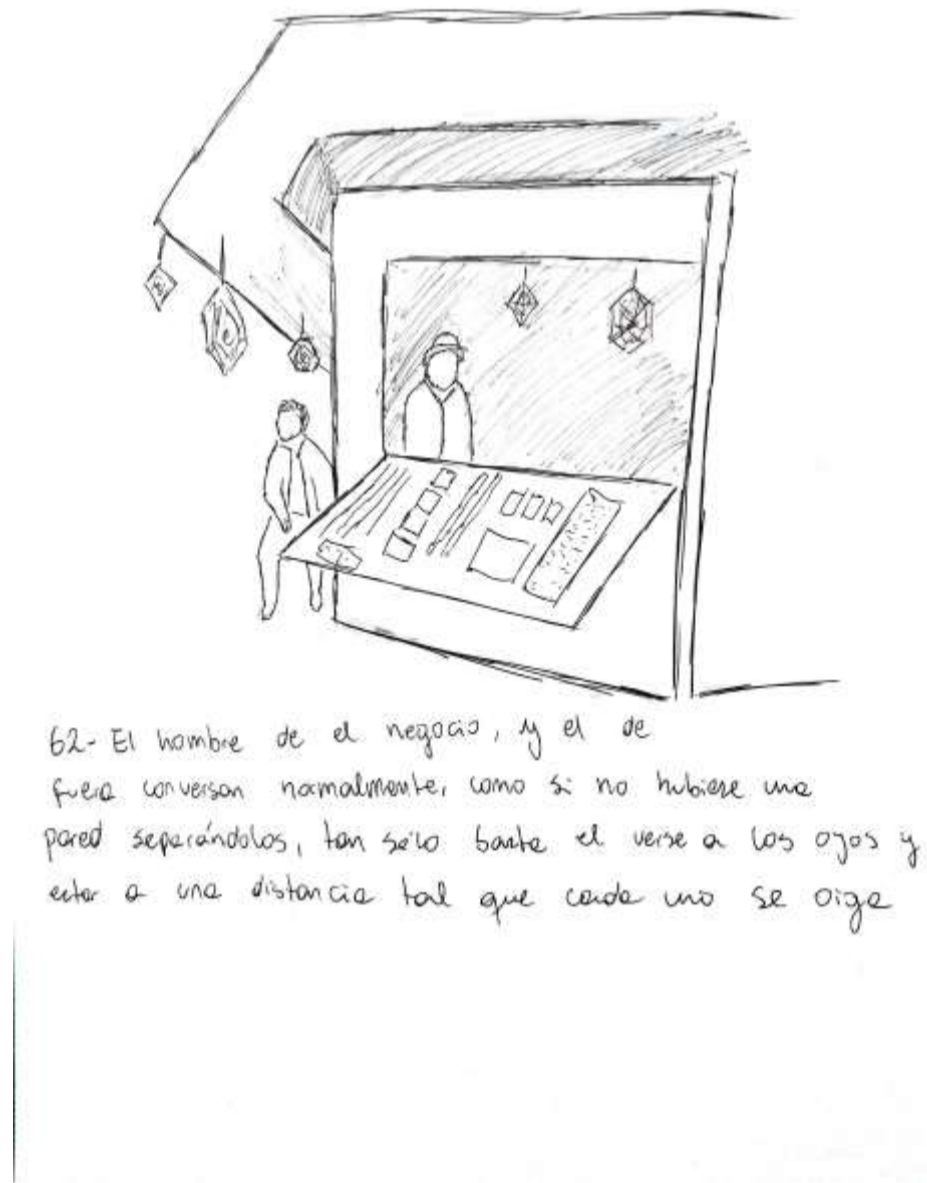 62- El hombre de el negocio, y el de
fuera conversan normalmente, como si no hubiese una
pared separándolos, tan sólo basta el verse a los ojos y
estar a una distancia tal que cada uno se oiga